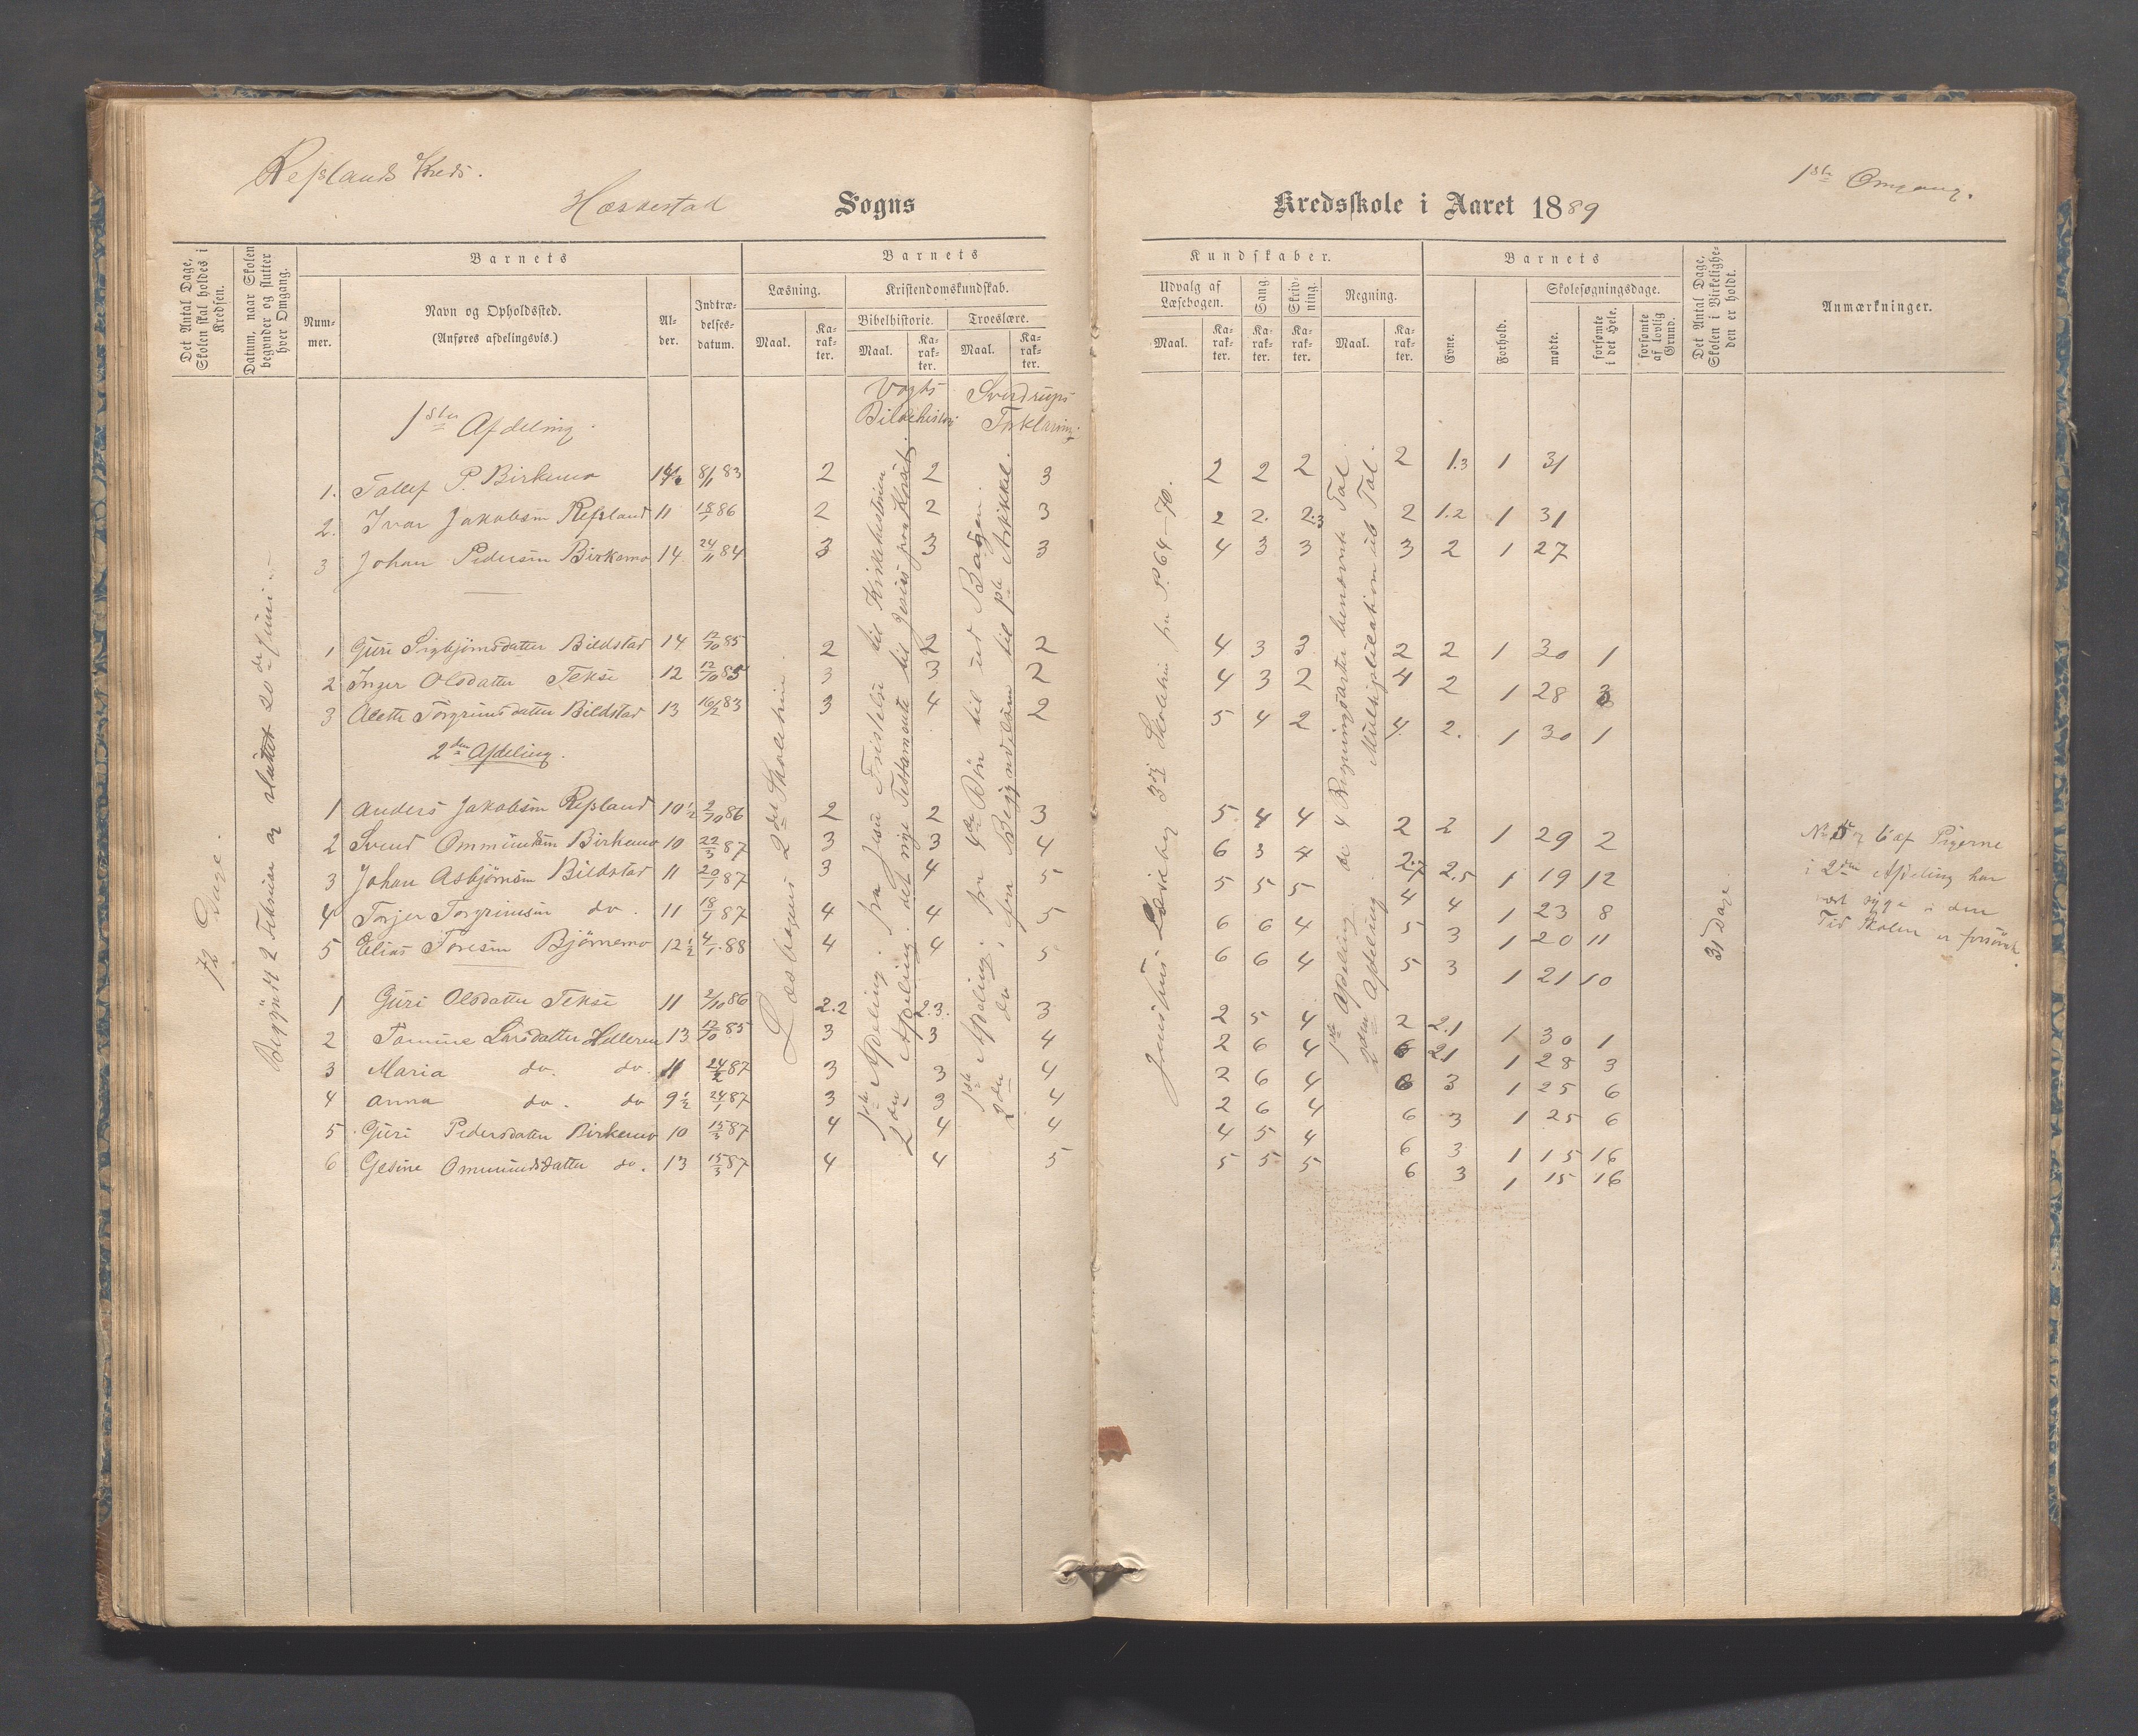 Refslands Kreds.
1ste Omgang.
Hæskestad Sogns
Kredsskole i Aaret 1889
Det Antal Dage, Skolen skal holdes i Kredsen.
Datum, naar Skolen begynder og slutter hver Omgang.
Barnets
Nummer.
Navn og Opholdssted.
(Anføres afdelingsvis.)
Alder.
Indtrædelsesdatum.
Barnets
Læsning.
Kristendomskundskab.
Bibelhistorie.
Troeslære.
Maal.
Karakter.
Maal.
Karakter.
Maal.
Karakter.
Kundskaber.
Udvalg af Læsebogen.
Sang.
Skrivning.
Regning.
Maal.
Karakter.
Karakter.
Karakter.
Maal.
Karakter.
Barnets
Evne.
Forhold.
Skolesøgningsdage.
mødte.
forsømte i det Hele.
forsømte af lovlig Grund.
Det Antal Dage, Skolen i Virkeligheden er holdt.
Anmærkninger.
72 Dage.
Begyndt 2 Februar og sluttet 20de Juni
Vogts Bibelhistorie
Sverdrups Forklaring
1ste Afdeling.
1. Tallef P. Birkemo 14½ 8/11 83 2 2 3 2 2 2 2 1.3 1 31
2. Ivar Jakobsen Refsland 11 18/1 86 2 2 3 2 2. 2.3 2 1.2 1 31
3 Johan Pedersen Birkemo 14 24/11 84 3 3 3 4 3 3 3 2 1 27
1 Guri Sigbjørnsdatter Bildstad 14 12/10 85 2 2 2 4 3 3 2 2 1 30 1
2 Inger Olsdatter Tekse 12 12/10 85 3 3 2 4 3 2 4 2 1 28 3
3 Alette Torgrimsdatter Bildstad 13 16/2 83 3 4 2 5 4 2 4 2. 1 30 1
2den Afdeling.
1 Anders Jakobsen Refsland 10½ 2/10 86 2 2 3 5 4 4 2 2 1 29 2
2 Svend Ommundsen Birkemo 10 22/3 87 3 3 4 6 3 4 2.7 2.5 1 19 12
3 Johan Asbjørnsen Bildstad 11 20/1 87 3 4 5 5 5 5 4 4 1 23 8
4 Torjer Torgrimsen do. 11 18/1 87 4 4 5 6 6 4 5 3 1 20 11
5 Elias Toresen Bjørnemo 12½ 4/1 88 4 4 5 6 6 4 5 3 1 21 10
1 Guri Olsdatter Tekse 11 2/10 86 2.2 2.3. 3 2 5 4 2 2.1 1 30 1
2 Tomine Larsdatter Helleren 13 12/10 85 3 3 4 2 6 4 6 21 1 28 3
3 Maria do. do. 11 24/2 87 3 3 4 2 6 4 6 3 1 25 6
4 Anna do. do 9½ 24/1 87 3 3 4 2 6 4 6 3 1 25 6
5 Guri Pedersdatter Birkemo 10 15/3 87 4 4 4 4 5 4 6 3 1 15 16
6 Gesine Ommundsdatter do. 13 15/3 87 4 4 5 5 5 5 6 3 1 15 16
Læsbogens 2det Skoletrin.
1ste Afdeling: fra Jesu Fristelse til Kirkehistorien
2den Afdeling: det nye Testamente til Jesus paa Korset.
1ste Afdeling: fra 4de Bøn til ud Bogen.
2den do, fra Begyndelsen til 1ste Artikkel.
Jensens Læsebog 3die Skoletrin fra P. 64–70.
1ste Afdeling de 4 Regningsarter benævnte Tal.
2den Afdeling Multiplikation ub Tal.
31 Dage.
No 5 og 6 af Pigerne
i 2den Afdeling har
vært syge i den
Tid Skolen er forsømt.